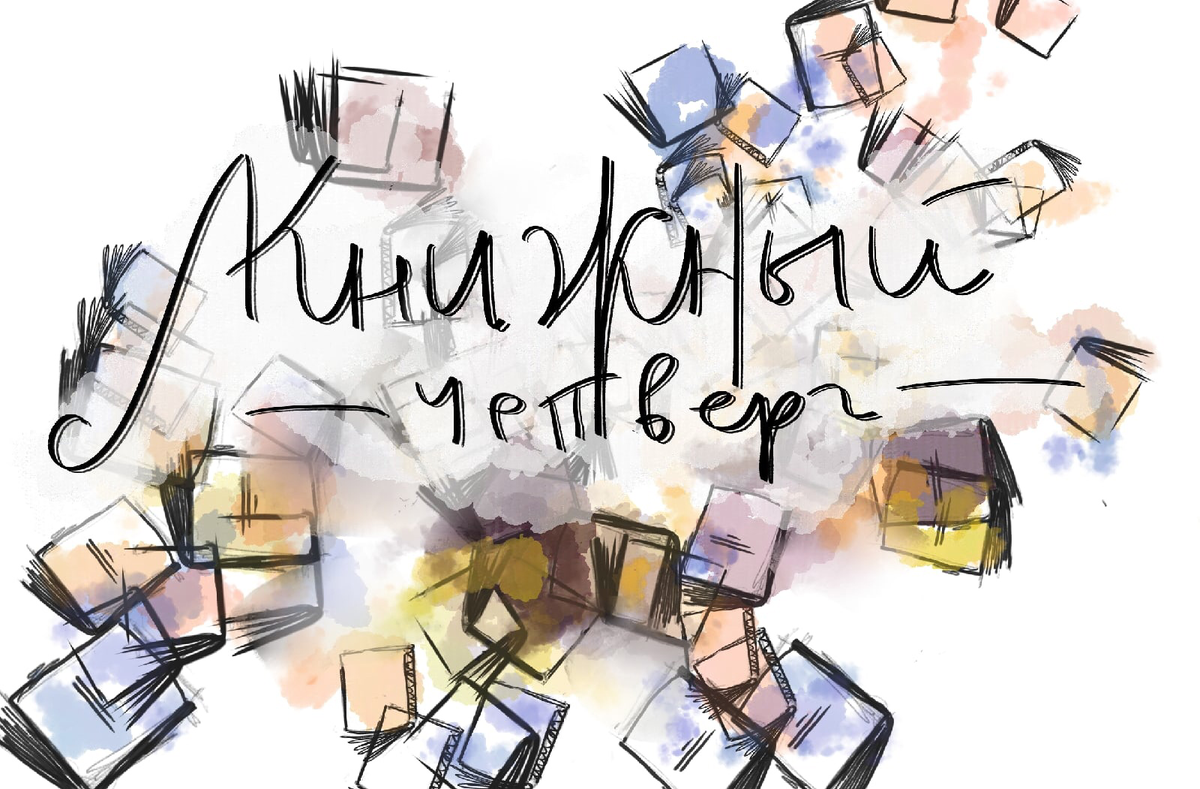 Книжный
четверг